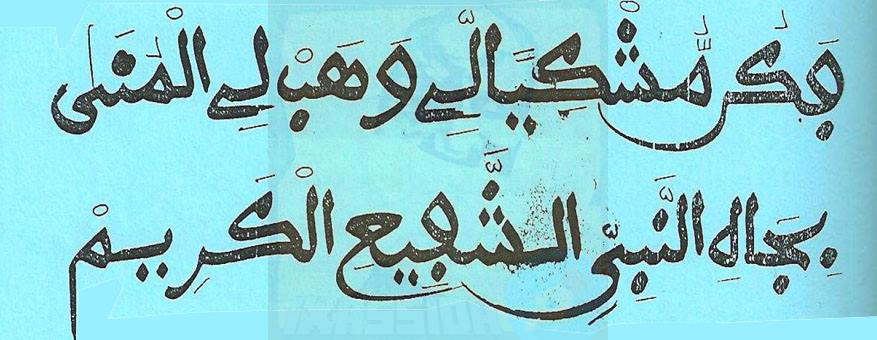 فَكُن مُّشْكِيًا لِّي وَهَبْ لِي الْمُنَى
بِجَاهِ النَّبِيِّ الشَّفِيعِ الْكَرِيمْ